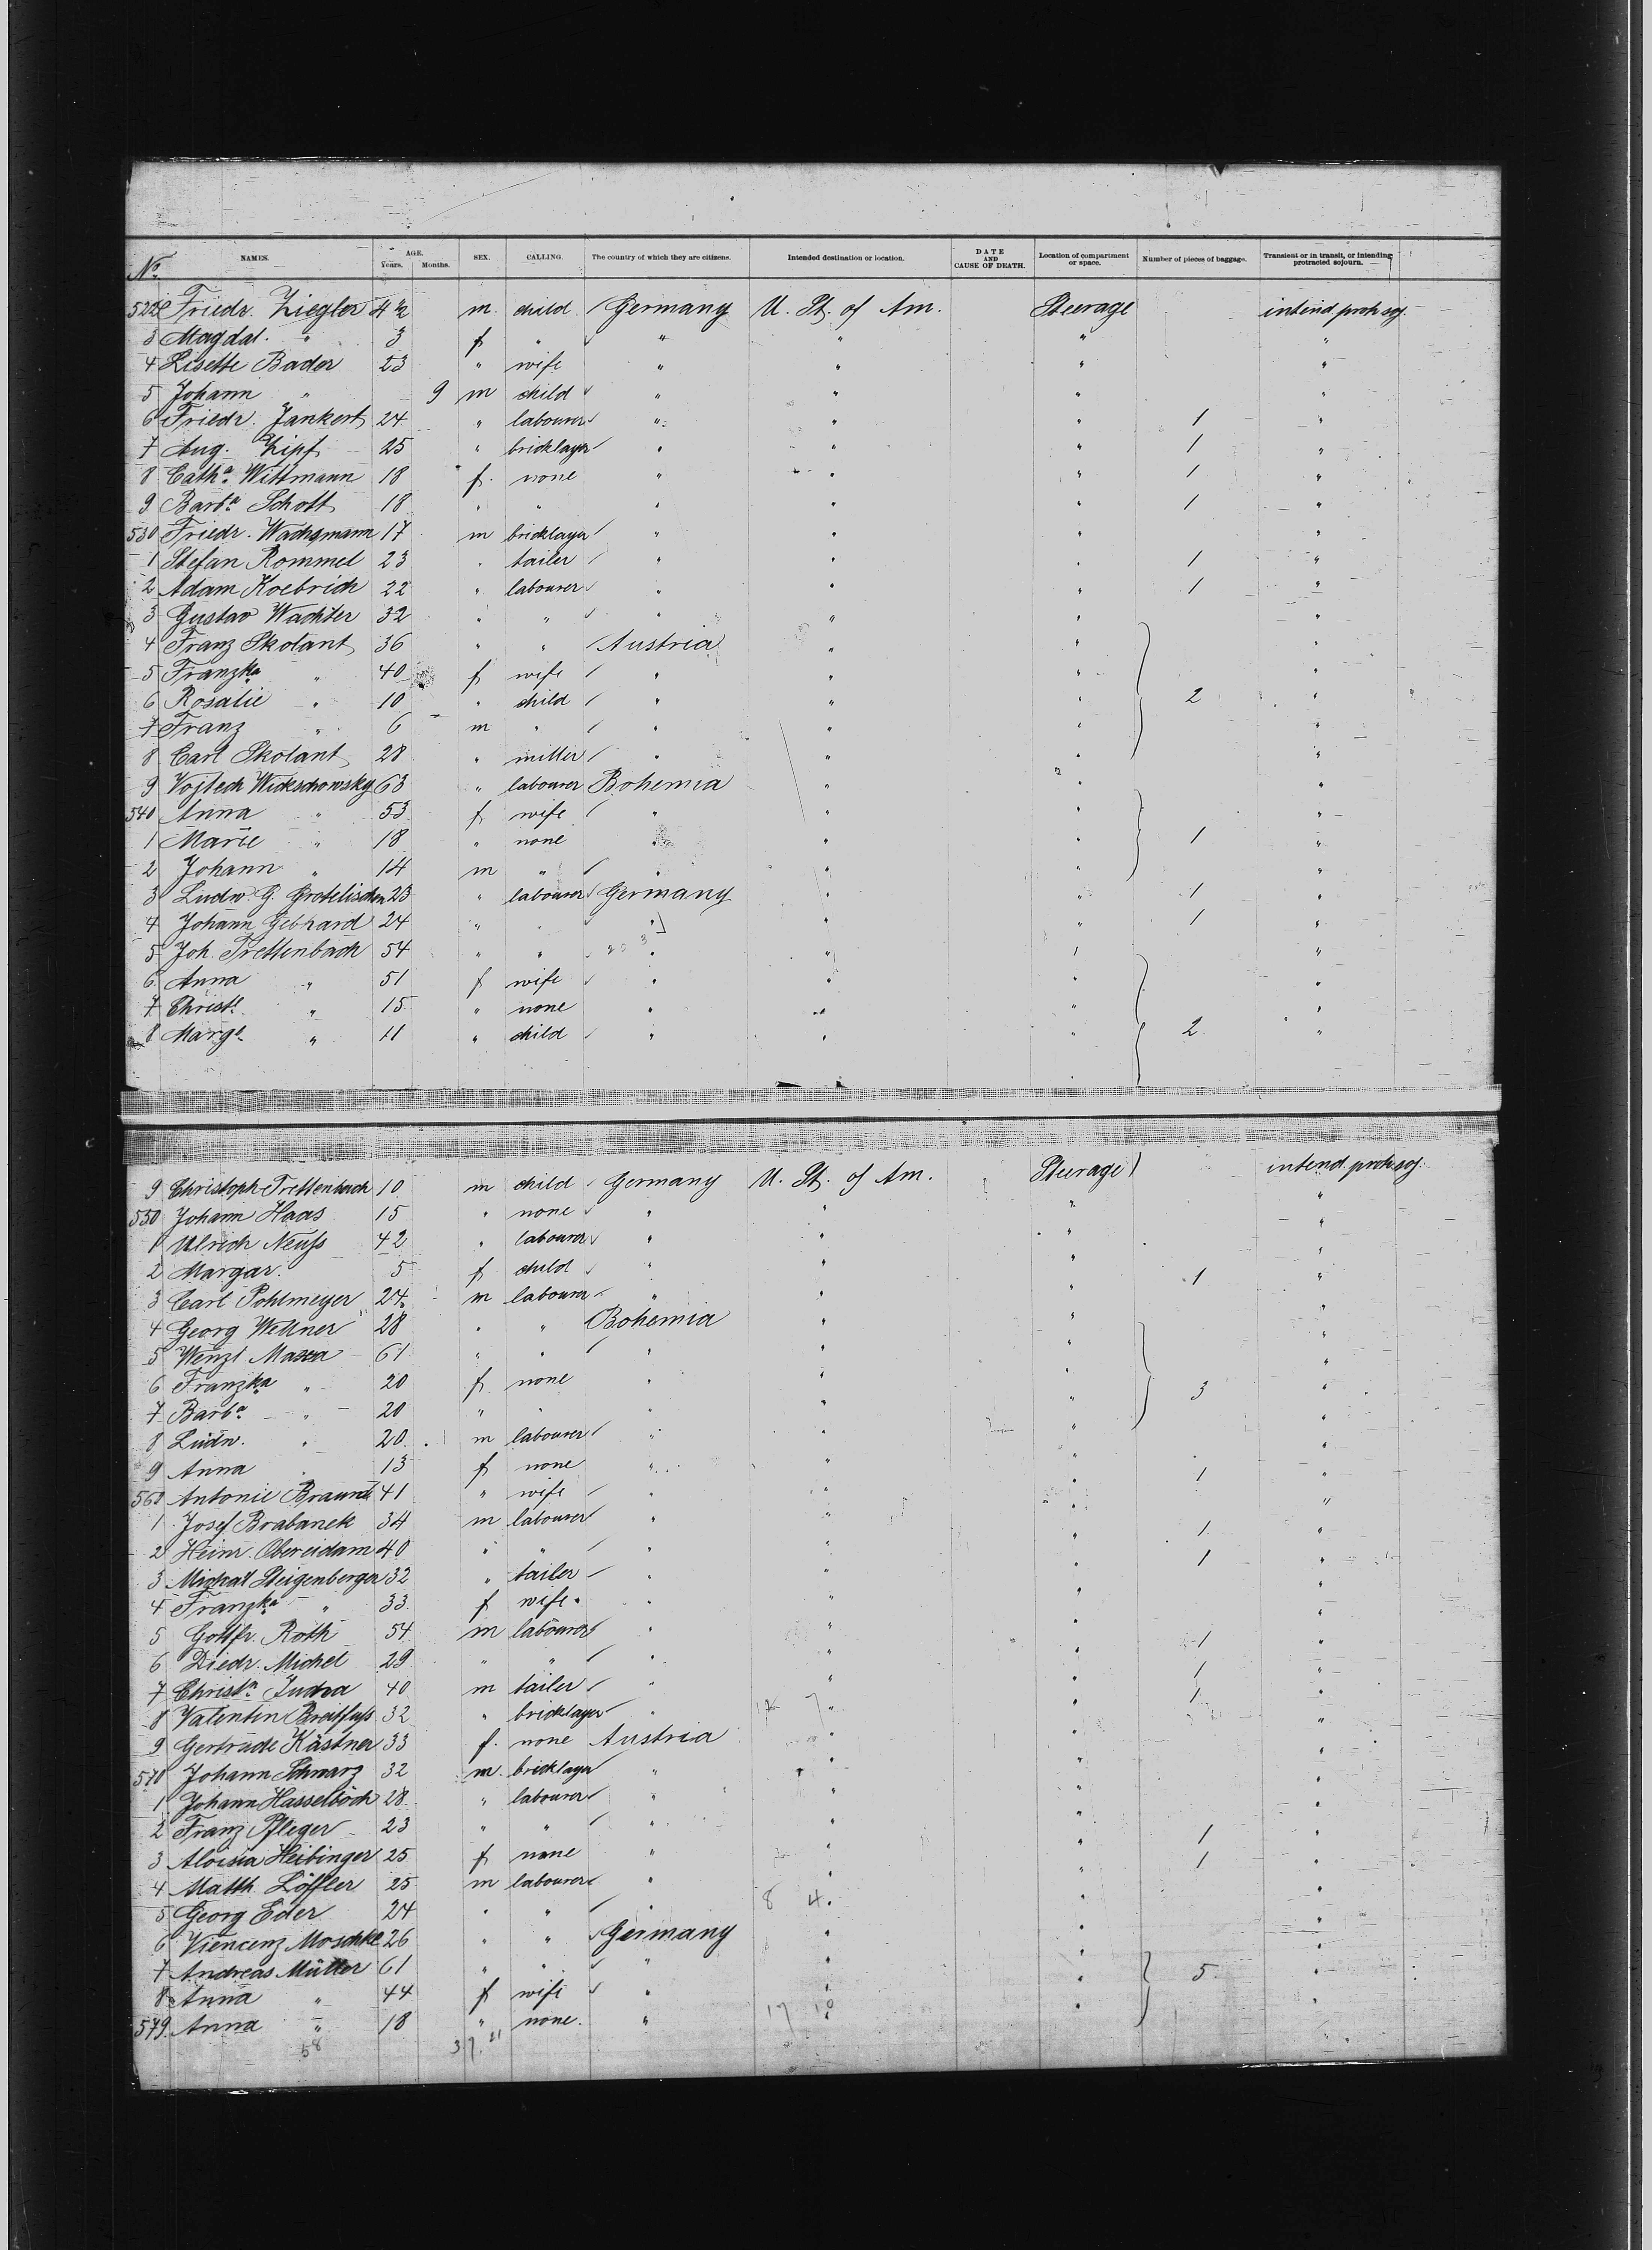 No. NAMES. AGE. Years. Months. SEX. CALLING. The country of which they are citizens. Intended destination or location. DATE AND CAUSE OF DEATH. Location of compartment or space. Number of pieces of baggage. Transient or in transit, or intending protracted sojourn.
522 Friedr. Ziegler 4½ m. child Germany U. St. of Am. Steerage intend. protr. soj.
3 Magdal. " 3 f " " " " "
4 Lisette Bader 23 " wife " " " "
5 Johann " 9 m child " " " "
6 Friedr. Jankert 24 " labourer " " " 1 "
7 Aug. Zipf 25 " bricklayer " " " 1 "
8 Catha. Wittmann 18 f. none " " " 1 "
9 Barba. Schott 18 " " " " " 1 "
530 Friedr. Wachsmann 17 m bricklayer " " " "
1 Stefan Rommel 23 " tailer " " " 1 "
2 Adam Koebrich 22 " labourer " " " 1 "
3 Gustav Wachter 32 " " " " " "
4 Franz Skolant 36 " " Austria " " "
5 Franzka " 40 f wife " " " "
6 Rosalie " 10 " child " " " 2 "
7 Franz " 6 m " " " " "
8 Carl Skolant 28 " miller " " " "
9 Vojtech Wickschowsky 63 " labourer Bohemia " " "
540 Anna " 53 f wife " " " "
1 Marie " 18 " none " " " 1 "
2 Johann " 14 m " " " " "
3 Ludw. G. Grotelischen 23 " labourer Germany " " 1 "
4 Johann Gebhard 24 " " " " " 1 "
5 Joh. Trettenbach 54 " " " " " "
6 Anna " 51 f wife " " " "
7 Christe. " 15 " none " " " "
8 Marge. " 11 " child " " " 2 "
9 Christoph Trettenbach 10 m child Germany U. St. of Am. Steerage intend. protr. soj.
550 Johann Haas 15 " none " " " "
1 Ulrich Neuss 42 " labourer " " " "
2 Margar. 5 f child " " " "
3 Carl Pohlmeyer 24 m labourer " " " 1 "
4 Georg Wellner 28 " " Bohemia " " "
5 Wenzl 61 " " " " " "
6 Franzka " 20 f none " " " "
7 Barba. " 20 " " " " " 3 "
8 Ludw. " 20 m labourer " " " "
9 Anna " 13 f none " " " "
560 Antonie 41 " wife " " " 1 "
1 Josef Brabanek 34 m labourer " " " "
2 Heinr. Obereidam 40 " " " " " 1 "
3 Michael Steigenberger 32 " tailer " " " 1 "
4 Franzka " 33 f wife " " " "
5 Gottfr. Roth 54 m labourer " " " "
6 Diedr. Michel 29 " " " " " 1 "
7 Christn. 40 m tailer " " " 1 "
8 Valentin Breitfuss 32 " bricklayer " " " 1 "
9 Gertrude Kästner 33 f. none Austria " " "
570 Johann Schwarz 32 m. bricklayer " " " "
1 Johann Hasselböck 28 " labourer " " " "
2 Franz Pfleger 23 " " " " " "
3 Aloisia Heibinger 25 f none " " " 1 "
4 Matth. Löffler 25 m labourer " " " 1 "
5 Georg Eder 24 " " " 8 4 " " "
6 Viencenz Moschke 26 " " Germany " " "
7 Andreas Müller 61 " " " " " "
8 Anna " 44 f wife " " " 5 "
579 Anna " 18 " none. " 17 10 " " "
58 37. 21